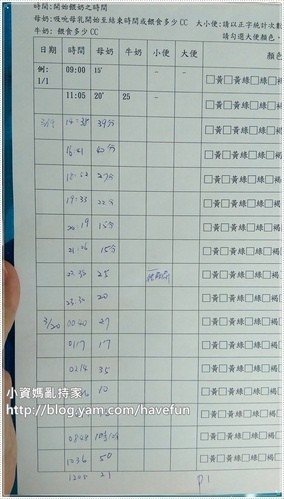 時間:開始餵奶之時間
母奶:吸吮母乳開始至結束時間或餵食多少CC 大小便:請以正字統計次數
牛奶:餵食多少CC 請勾選大便顏色
日期 時間 母奶 牛奶 小便 大便 顏色
例: 1/1 09:00 15' □黃□黃綠□綠□褐
11:05 20' 25 □黃□黃綠□綠□褐
14:38 39分 □黃□黃綠□綠□褐
16:41 40分 □黃□黃綠□綠□褐
27分 □黃□黃綠□綠□褐
19:33 22分 □黃□黃綠□綠□褐
20:19 15分 □黃□黃綠□綠□褐
21:26 15分 □黃□黃綠□綠□褐
22:50 25 □黃□黃綠□綠□褐
23:30 20 □黃□黃綠□綠□褐
3/20 0040 27 □黃□黃綠□綠□褐
0117 17 □黃□黃綠□綠□褐
0214 35 □黃□黃綠□綠□褐
10
小資媽亂持家
http://blog.yam.com/havefun
0848 □黃□黃綠□綠□褐
1036 50 □黃□黃綠□綠□褐
1205 21
P1